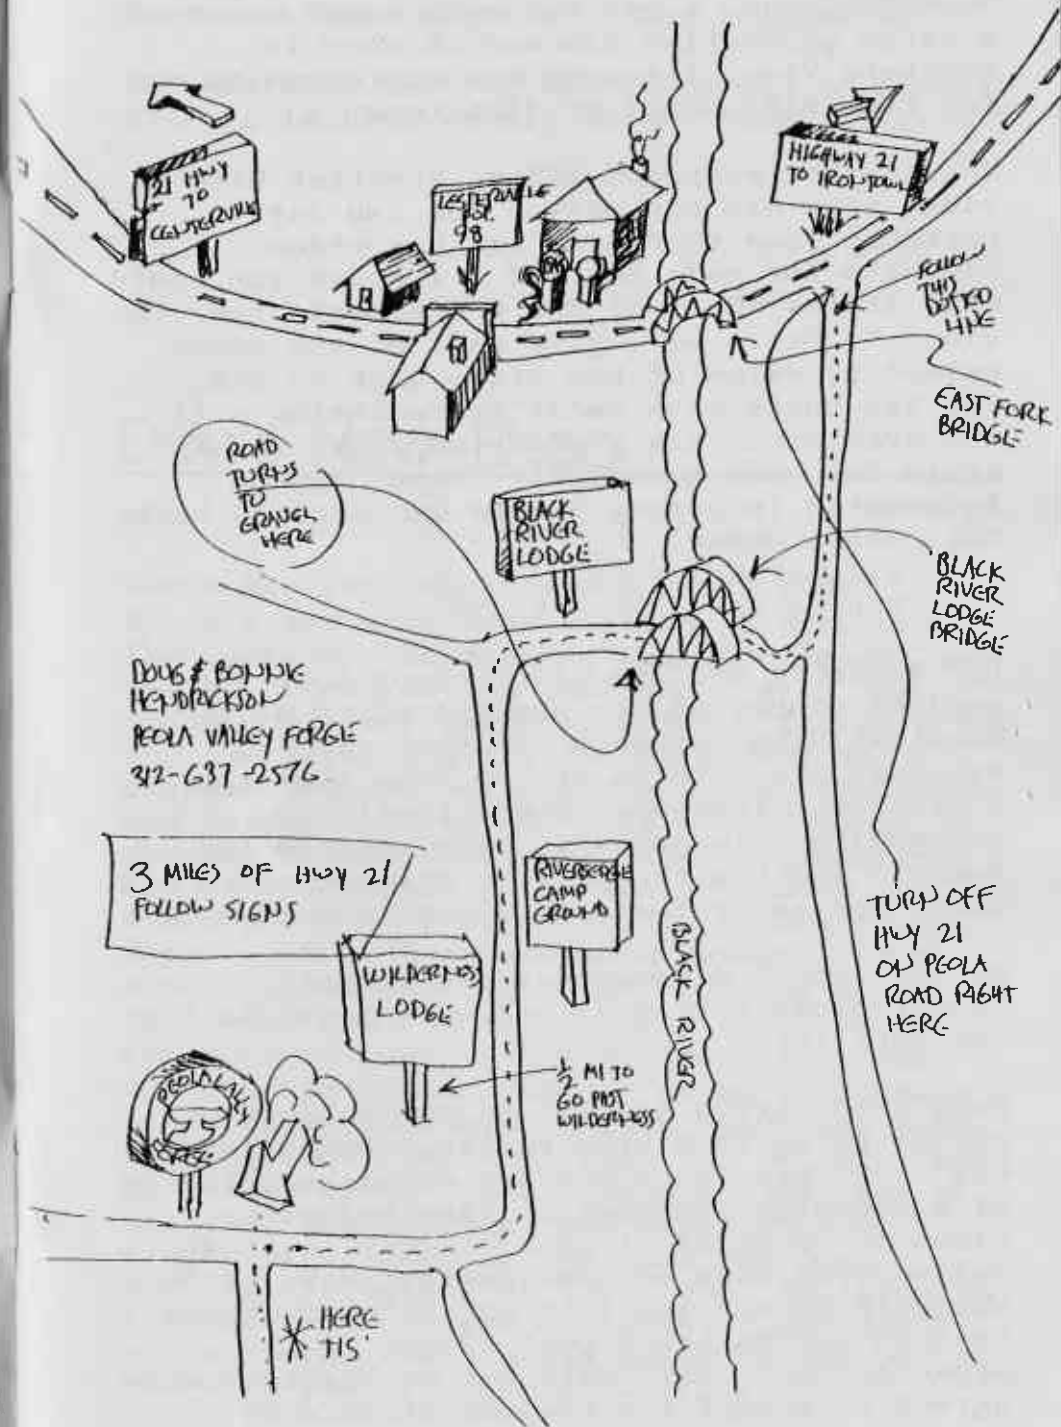 21 HWY
TO
CENTERVILLE
LESTERVILLE
POP.
98
HIGHWAY 21
TO IRONTOWN
FOLLOW
THIS
DOTTED
LINE
EAST FORK
BRIDGE
ROAD
TURNS
TO
GRAVEL
HERE
BLACK
RIVER
LODGE
BLACK
RIVER
LODGE
BRIDGE
DOUG & BONNIE
HENDRICKSON
PEOLA VALLEY FORGE
312-637-2576
3 MILES OF HWY 21
FOLLOW SIGNS
CAMP
GROUND
BLACK RIVER
TURN OFF
HWY 21
ON PEOLA
ROAD RIGHT
HERE
WILDERNESS
LODGE
1/2 MI TO
GO PAST
WILDERNESS
PEOLA VALLEY
FORGE
HERE
TIS'